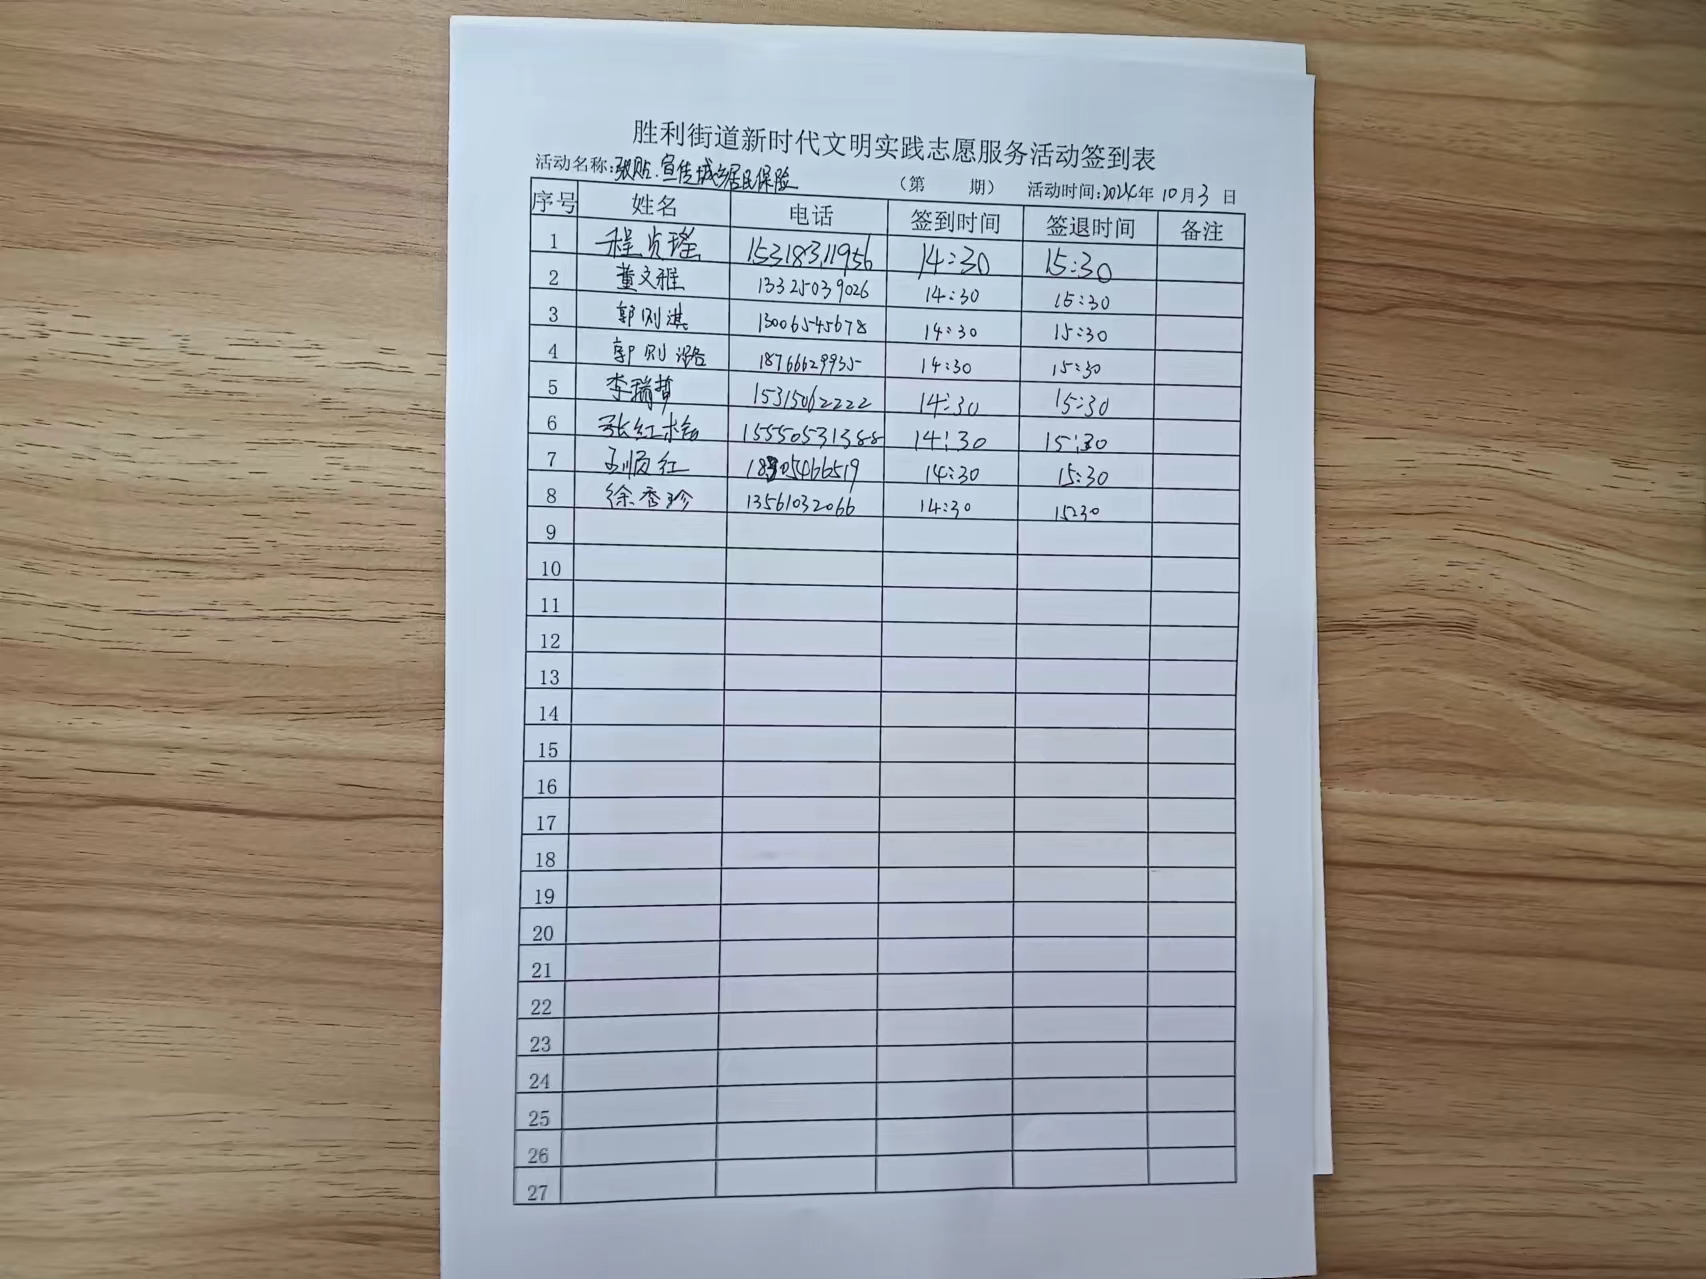 胜利街道新时代文明实践志愿服务活动签到表
活动名称:张贴.宣传城乡居民保险 （第 期） 活动时间:2024年 10月 3 日
序号 姓名 电话 签到时间 签退时间 备注
1 程贞瑶 15318311956 14:30 15:30
2 董文雅 13325039026 14:30 15:30
3 郭则淇 13006545678 14:30 15:30
4 郭则潞 18766629935 14:30 15:30
5 李瑞哲 15315062222 14:30 15:30
6 张红梅 15550531388 14:30 15:30
7 顺红 14:30 15:30
8 徐秀珍 13561032066 14:30 15:30
9
10
11
12
13
14
15
16
17
18
19
20
21
22
23
24
25
26
27